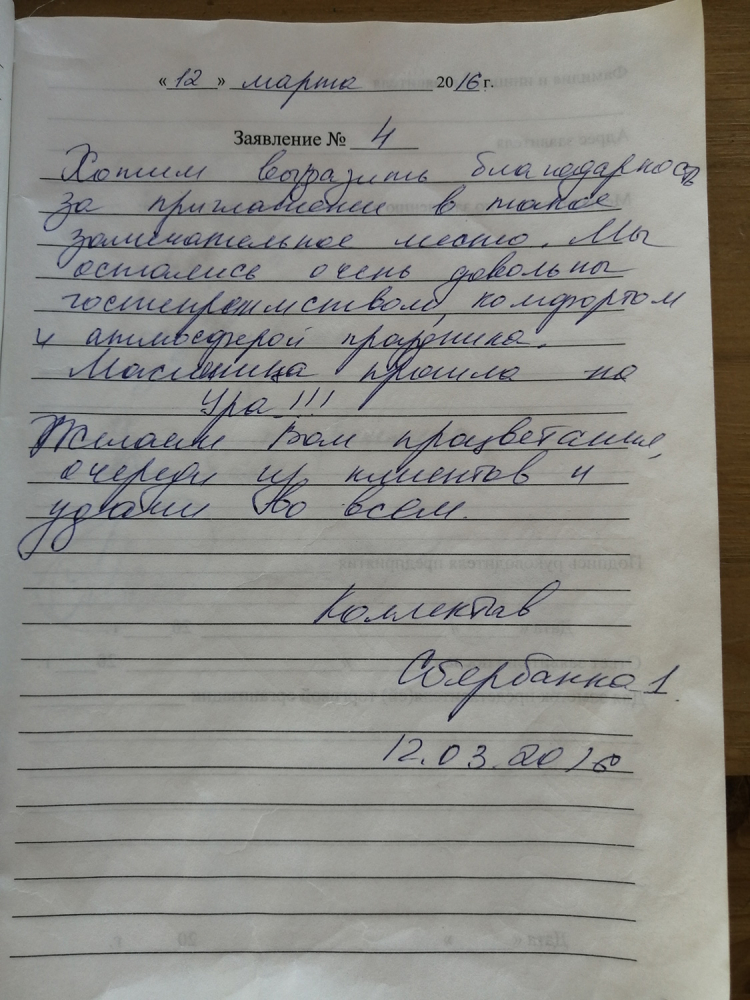 « 12 » марта 2016 г.
Заявление № 4
Хотим выразить благодарность
за приглашение в такое
замечательное место. Мы
остались очень довольны
гостеприимством, комфортом
и атмосферой праздника.
Масленица прошла на
Ура!!!
Желаем Вам процветания,
очереди из клиентов и
удачи во всем.
Коллектив
Сбербанка 1.
12.03.2016